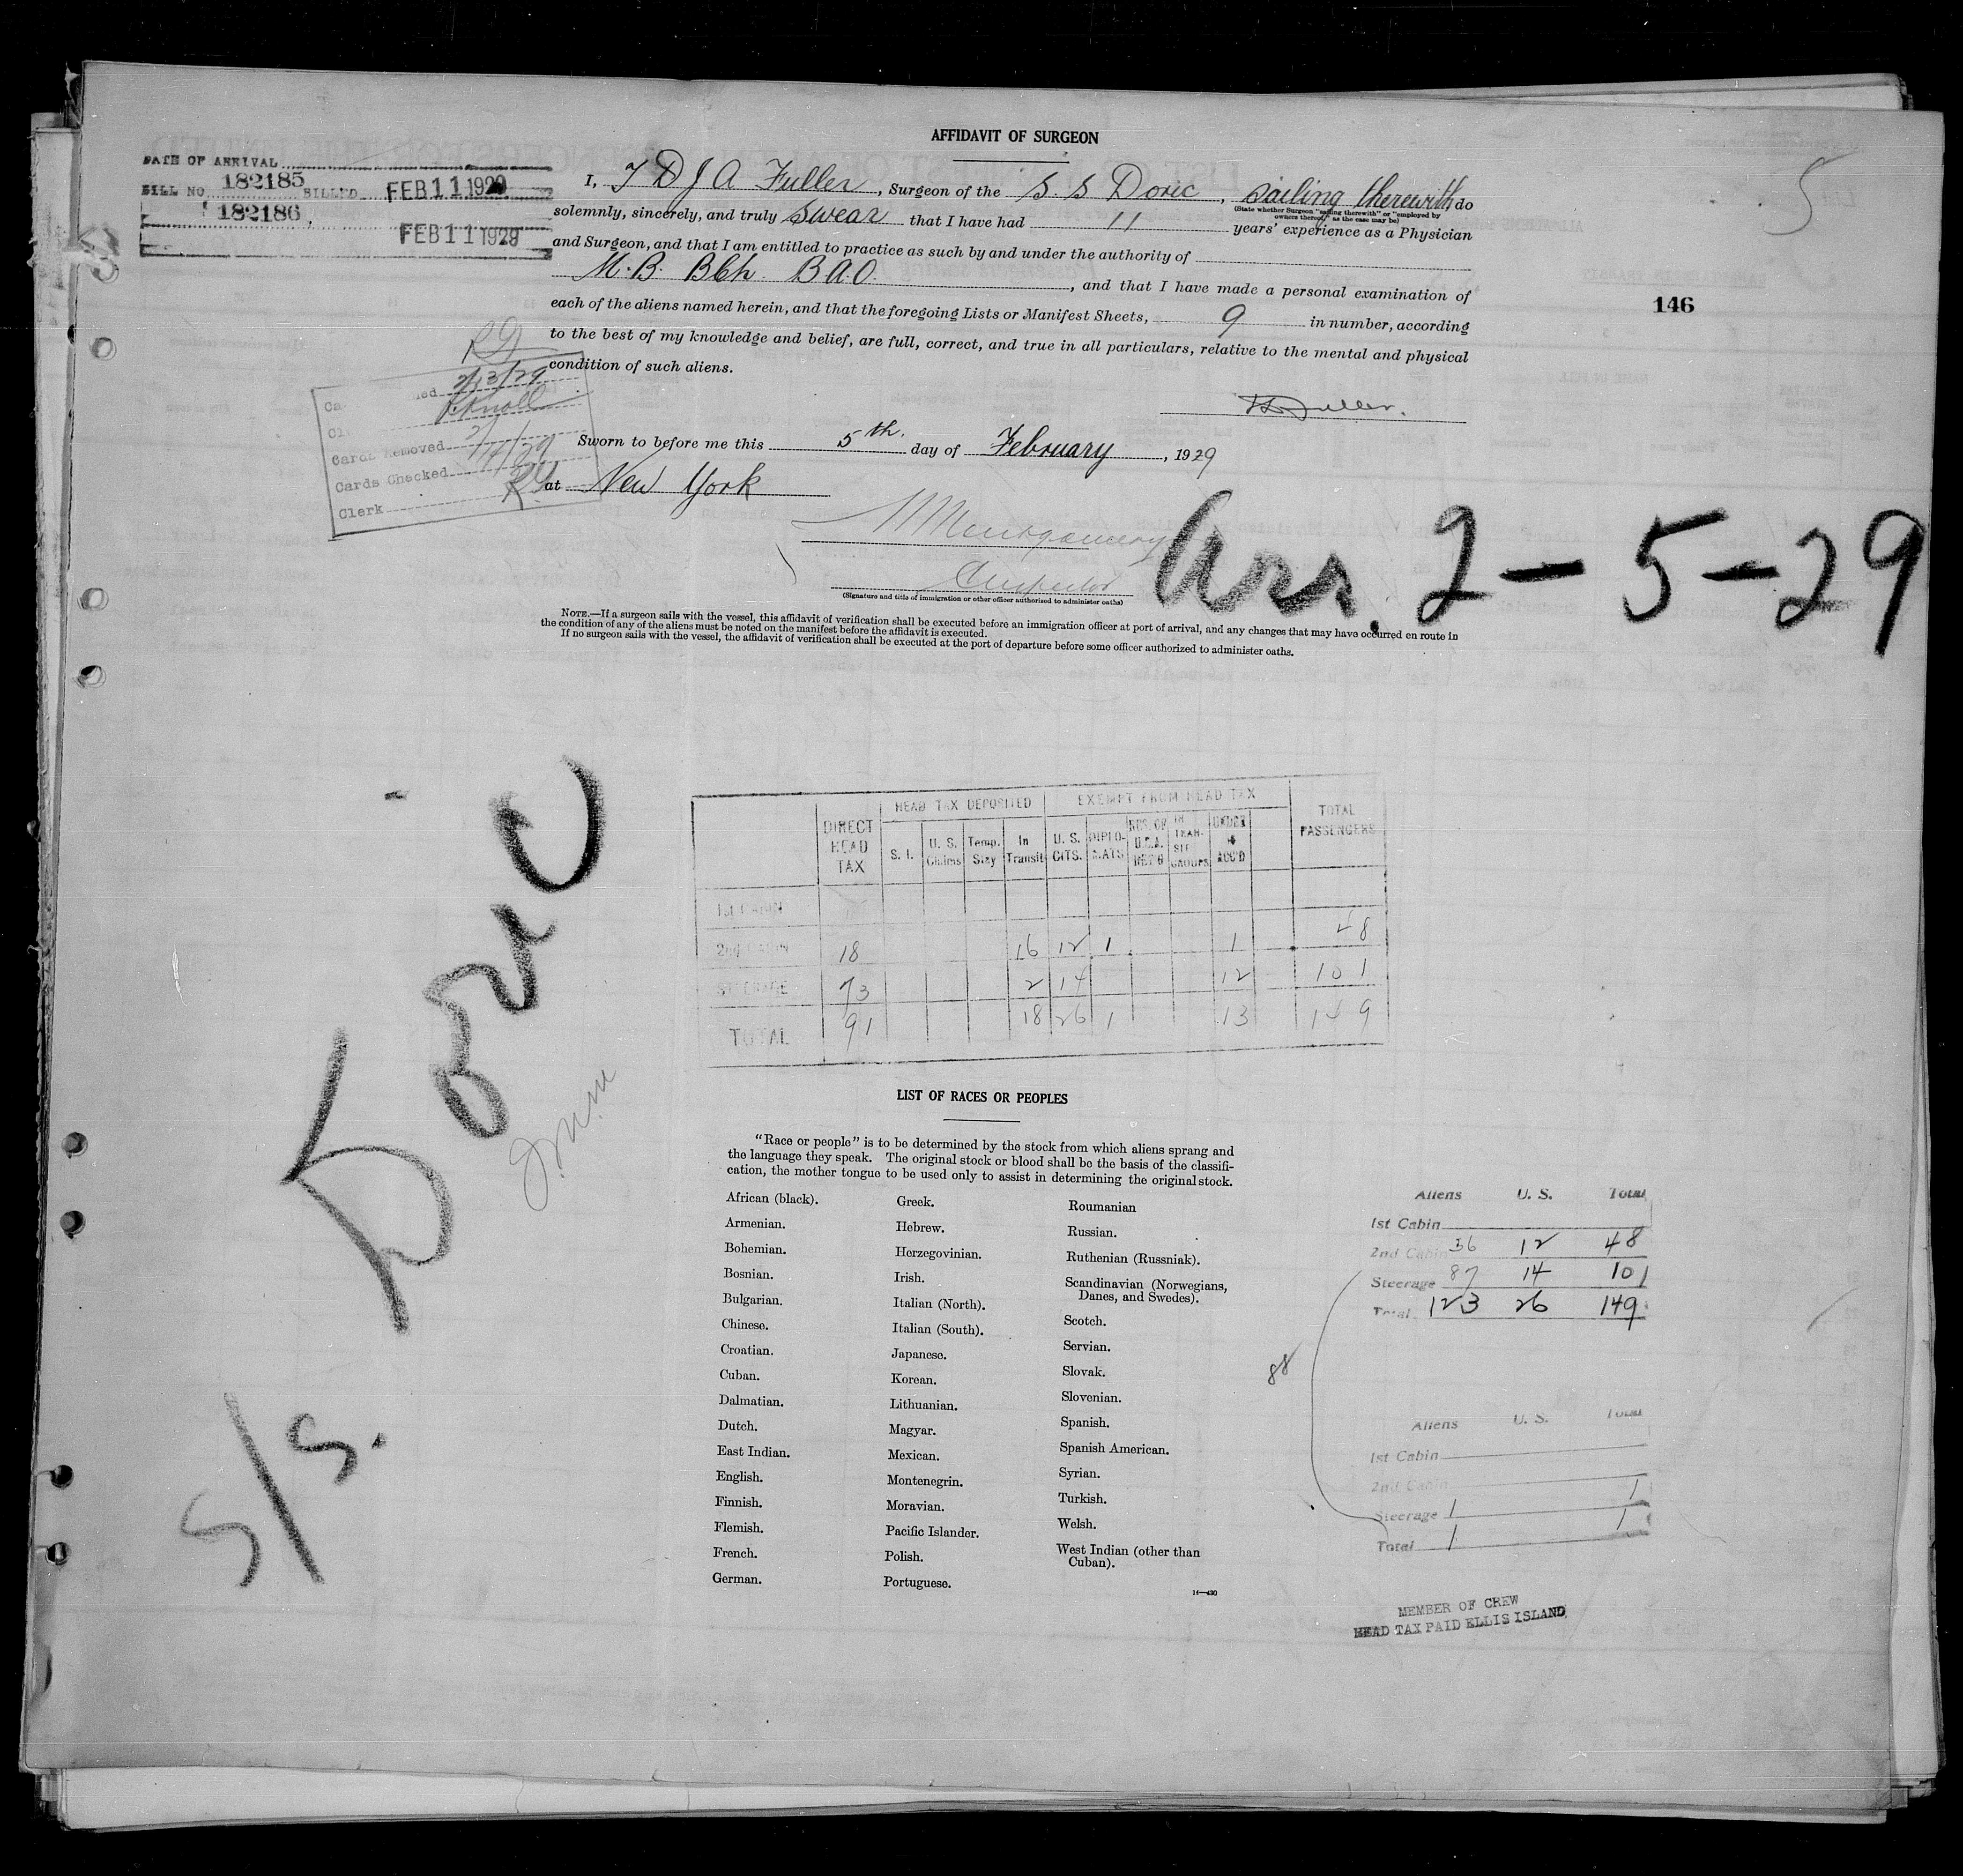 AFFIDAVIT OF SURGEON
DATE OF ARRIVAL
BILL NO. 182185 BILLED FEB 11 1929
182186 FEB 11 1929
I, T D J A Fuller, Surgeon of the S. S Doric, sailing therewith do
(State whether Surgeon "sailing therewith" or "employed by
owners thereof," as the case may be)
solemnly, sincerely, and truly swear that I have had 11 years' experience as a Physician
and Surgeon, and that I am entitled to practice as such by and under the authority of
M.B. BCh. B.A.O., and that I have made a personal examination of
each of the aliens named herein, and that the foregoing Lists or Manifest Sheets, 9 in number, according
to the best of my knowledge and belief, are full, correct, and true in all particulars, relative to the mental and physical
condition of such aliens.
5
146
2/13/29
Cards Removed 2/14/29
Cards Checked
Clerk
Fuller.
Sworn to before me this 5th. day of February, 1929
at New York
Montgomery
Inspector
(Signature and title of immigration or other officer authorized to administer oaths)
Arr. 2-5-29
NOTE.—If a surgeon sails with the vessel, this affidavit of verification shall be executed before an immigration officer at port of arrival, and any changes that may have occurred en route in
the condition of any of the aliens must be noted on the manifest before the affidavit is executed.
If no surgeon sails with the vessel, the affidavit of verification shall be executed at the port of departure before some officer authorized to administer oaths.
S/S. Doric
DIRECT HEAD TAX
HEAD TAX DEPOSITED
EXEMPT FROM HEAD TAX
TOTAL PASSENGERS
S. I. U. S. Claims Temp. Stay In Transit U. S. CITS. DIPLOMATS RES. OF U.S.A. RET'G IN TRANSIT GROUPS UNDER 16 ACC'D
1st CABIN
2nd CABIN 18 16 12 1 1 48
STEERAGE 73 2 14 12 101
TOTAL 91 18 26 1 13 149
LIST OF RACES OR PEOPLES
"Race or people" is to be determined by the stock from which aliens sprang and
the language they speak. The original stock or blood shall be the basis of the classifi-
cation, the mother tongue to be used only to assist in determining the original stock.
African (black).
Armenian.
Bohemian.
Bosnian.
Bulgarian.
Chinese.
Croatian.
Cuban.
Dalmatian.
Dutch.
East Indian.
English.
Finnish.
Flemish.
French.
German.
Greek.
Hebrew.
Herzegovinian.
Irish.
Italian (North).
Italian (South).
Japanese.
Korean.
Lithuanian.
Magyar.
Mexican.
Montenegrin.
Moravian.
Pacific Islander.
Polish.
Portuguese.
Roumanian
Russian.
Ruthenian (Russniak).
Scandinavian (Norwegians,
Danes, and Swedes).
Scotch.
Servian.
Slovak.
Slovenian.
Spanish.
Spanish American.
Syrian.
Turkish.
Welsh.
West Indian (other than
Cuban).
Aliens U. S. Total
1st Cabin
2nd Cabin 36 12 48
Steerage 87 14 101
Total 123 26 149
88
Aliens U. S. Total
1st Cabin
2nd Cabin
Steerage 1 1
Total 1 1
MEMBER OF CREW
HEAD TAX PAID ELLIS ISLAND